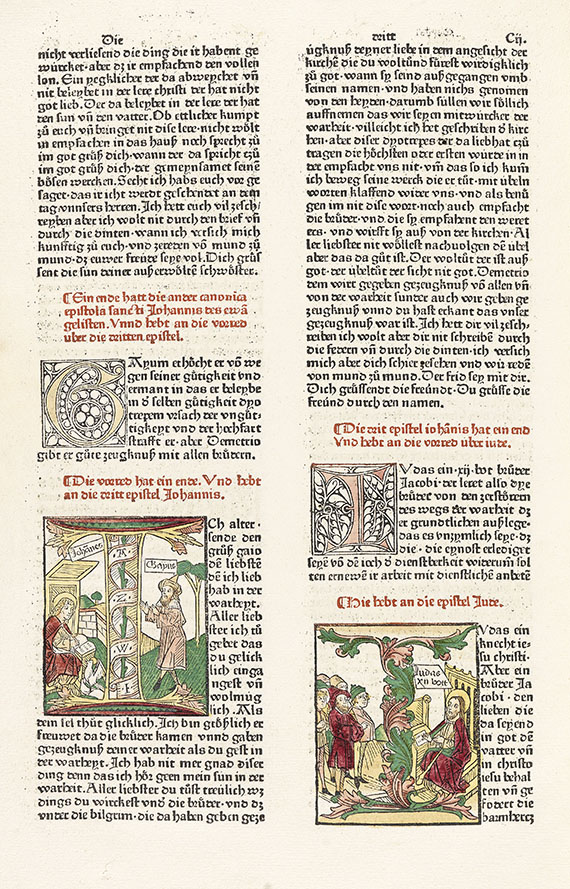 Die
nicht verliesend die ding die ir habent ge
würcket. aber dz ir empfachend den vollen
lon. Ein yegklicher der da abweychet vn̄
nit beleybet in der lere christi der hat nicht
got lieb. Der da beleybet in der lere der hat
den sun vn̄ den vatter. Ob ettlicher kumpt
zů euch vn̄ bringet nit dise lere. nicht wölt
in empfachen in das hauß noch sprecht zů
im got grüß dich. wann der da spricht zů
im got grüß dich. der gemeynsamet seinen
bösen wercken. Secht ich habs euch vor ge
saget. das ir icht werdt geschendet an dem
tag vnsers herren. Ich hett euch vil zeschꝛ
reyben aber ich wolt nit durch den brief vn̄
durch die dinten. wann ich versich mich
kunfftig zů euch. vnd zereden vō mund zů
mund. dz ewer freüde seye vol. Dich grüs
sent die sun deiner außerwölten schwöster.
¶Ein ende hatt die ander canonica
epistola sancti Johannis des ewā
gelisten. Vnnd hebt an die vorred
über die dritten epistel.
GAyum erhöcht er vō we
gen seiner gütigkeit vnd
ermant in das er beleybe
in d selben gütigkeit dyo
trepem vrsach der vngüt
tigkeyt vnd der hochfart
strafft er. aber Demetrio
gibt er gůte zeugknuß mit allen brüdern.
¶Die vorred hat ein ende. Vnd hebt
an die dritt epistel Johannis.
Johānes
Gayus
A. Z. W. I
Ch alter
sende den
grüß gaio
dē liebstē
dē ich lieb
hab in der
warheyt.
Aller lieb
ster ich tů
gebet das
du gelick
lich einga
ngest vn̄
wolmüg
lich. Als
dein sel thůt glicklich. Ich bin gröhlich er
freuwet da die brüder kamen vnnd gaben
gezeugknuß deiner warheit als du gest in
der warheyt. Ich hab nit mer gnad diser
ding denn das ich höꝛ geen mein sun in der
warheit. Aller liebster du tůst treülich wz
dings du wirckest vnd die brüder. vnd dz
vnder die bilgrim. die da haben geben geze
dritt
Cij.
ügknuß deyner liebe in dem angesicht der
kirchē die du woltůnd fürest wirdigklich
zů got. wann sy send außgegangen vmb
seinen namen. vnd haben nichs genomen
von den heyden. darumb süllen wir söllich
auffnemen das wir seyen mitwürcker der
warheit. villeicht ich het geschriben d kirc
hen. aber diser dyotrepes der da liebhat zů
tragen die höchsten oder ersten würde in in
der empfacht vns nit. vm̄ das so ich kum̄
ich beweg seine werck die er tůt. mit übeln
worten klaffend wider vns. vnd als benü
gen im nit dise wort. noch auch empfacht
die brüder. vnd. die sy empfahent den weret
ers. vnd wirfft sy auß von der kirchen. Al
ler liebster nit wöllest nachuolgen dē übel
aber das da gůt ist. Der woltůt der ist auß
got. der übeltůt der sicht nit got. Demetrio
dem wirt gegeben gezeugknuß vō allen vn̄
von der warheit sunder auch wir geben ge
zeugknuß vnnd du hast erkant das vnser
gezeugknuß war ist. Ich hett dir vil zeschꝛ
reiben ich wolt aber dir nit schreibē durch
die federn vn̄ durch die dinten. ich versich
mich aber dich schier zesehen vnd wir redē
von mund zů mund. Der frid sey mit dir.
Dich grüssendt die freündt. Du grüsse die
freünd durch den namen.
¶Die drit epistel iohānis hat ein end
Vnd hebt an die vorred über iude.
IVdas ein .xij. bot brůder
Jacobi. der leret also dye
brüder von den zerstörern
des wegs der warheit dz
er grundtlichen außlege.
das es vnzymlich seye. dz
die. die eynost erlediget
seyen vō dē ioch d dienstberkeit widerum̄ sol
ten ernewē ir arbeit mit dienstlichē anbetē
¶Hie hebt an die epistel Jude.
Judas
xij bott
Vdas ein
knecht ie-
su christi.
Aber ein
brůder Ja
cobi. den
lieben die
da seyend
in got dē
vatter vn̄
in christo
iesu behal
ten vn̄ ge
fodert die
barmhertz